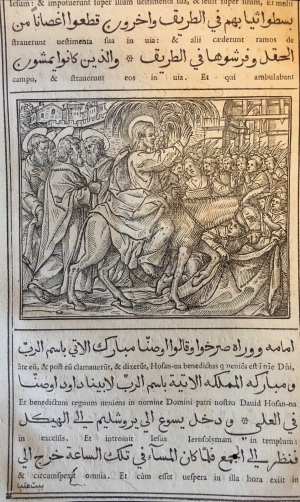 Iesum: & imposuerunt super illum uestimenta sua, & sedit super illum, Et multi
بسطوا ثيابهم في الطريق واخرون قطعوا اغصانا من
strauerunt uestimenta sua in uia: & alii cæderunt ramos de
الحقل وفرشوها في الطريق * والذين كانوا يمشون
campo, & strauerunt eos in uia. Et qui ambulabant
امامه ووراه صرخوا وقالوا اوصنا مبارك الاتي باسم الرب
āte eū, & post eū clamauerūt, & dixerūt, Hosan-na benedictus q ueniēs est ī nōe Dñi,
ومباركه المملكه الاتية باسم الرب لابينا داود اوصنا
Et benedictum regnum ueniens in nomine Domini patri nostro Dauid Hosan-na
في العلي * ودخل يسوع الي يروشليم الي الهيكل
in excelsis. Et introiuit Iesus Ierosolymam in templum:
فنظر الي الجميع فلما كان المساء في تلك الساعة خرج الي
& circumspexit omnia. Et cùm esset uespera in illa hora exiit in
بيت عنيا